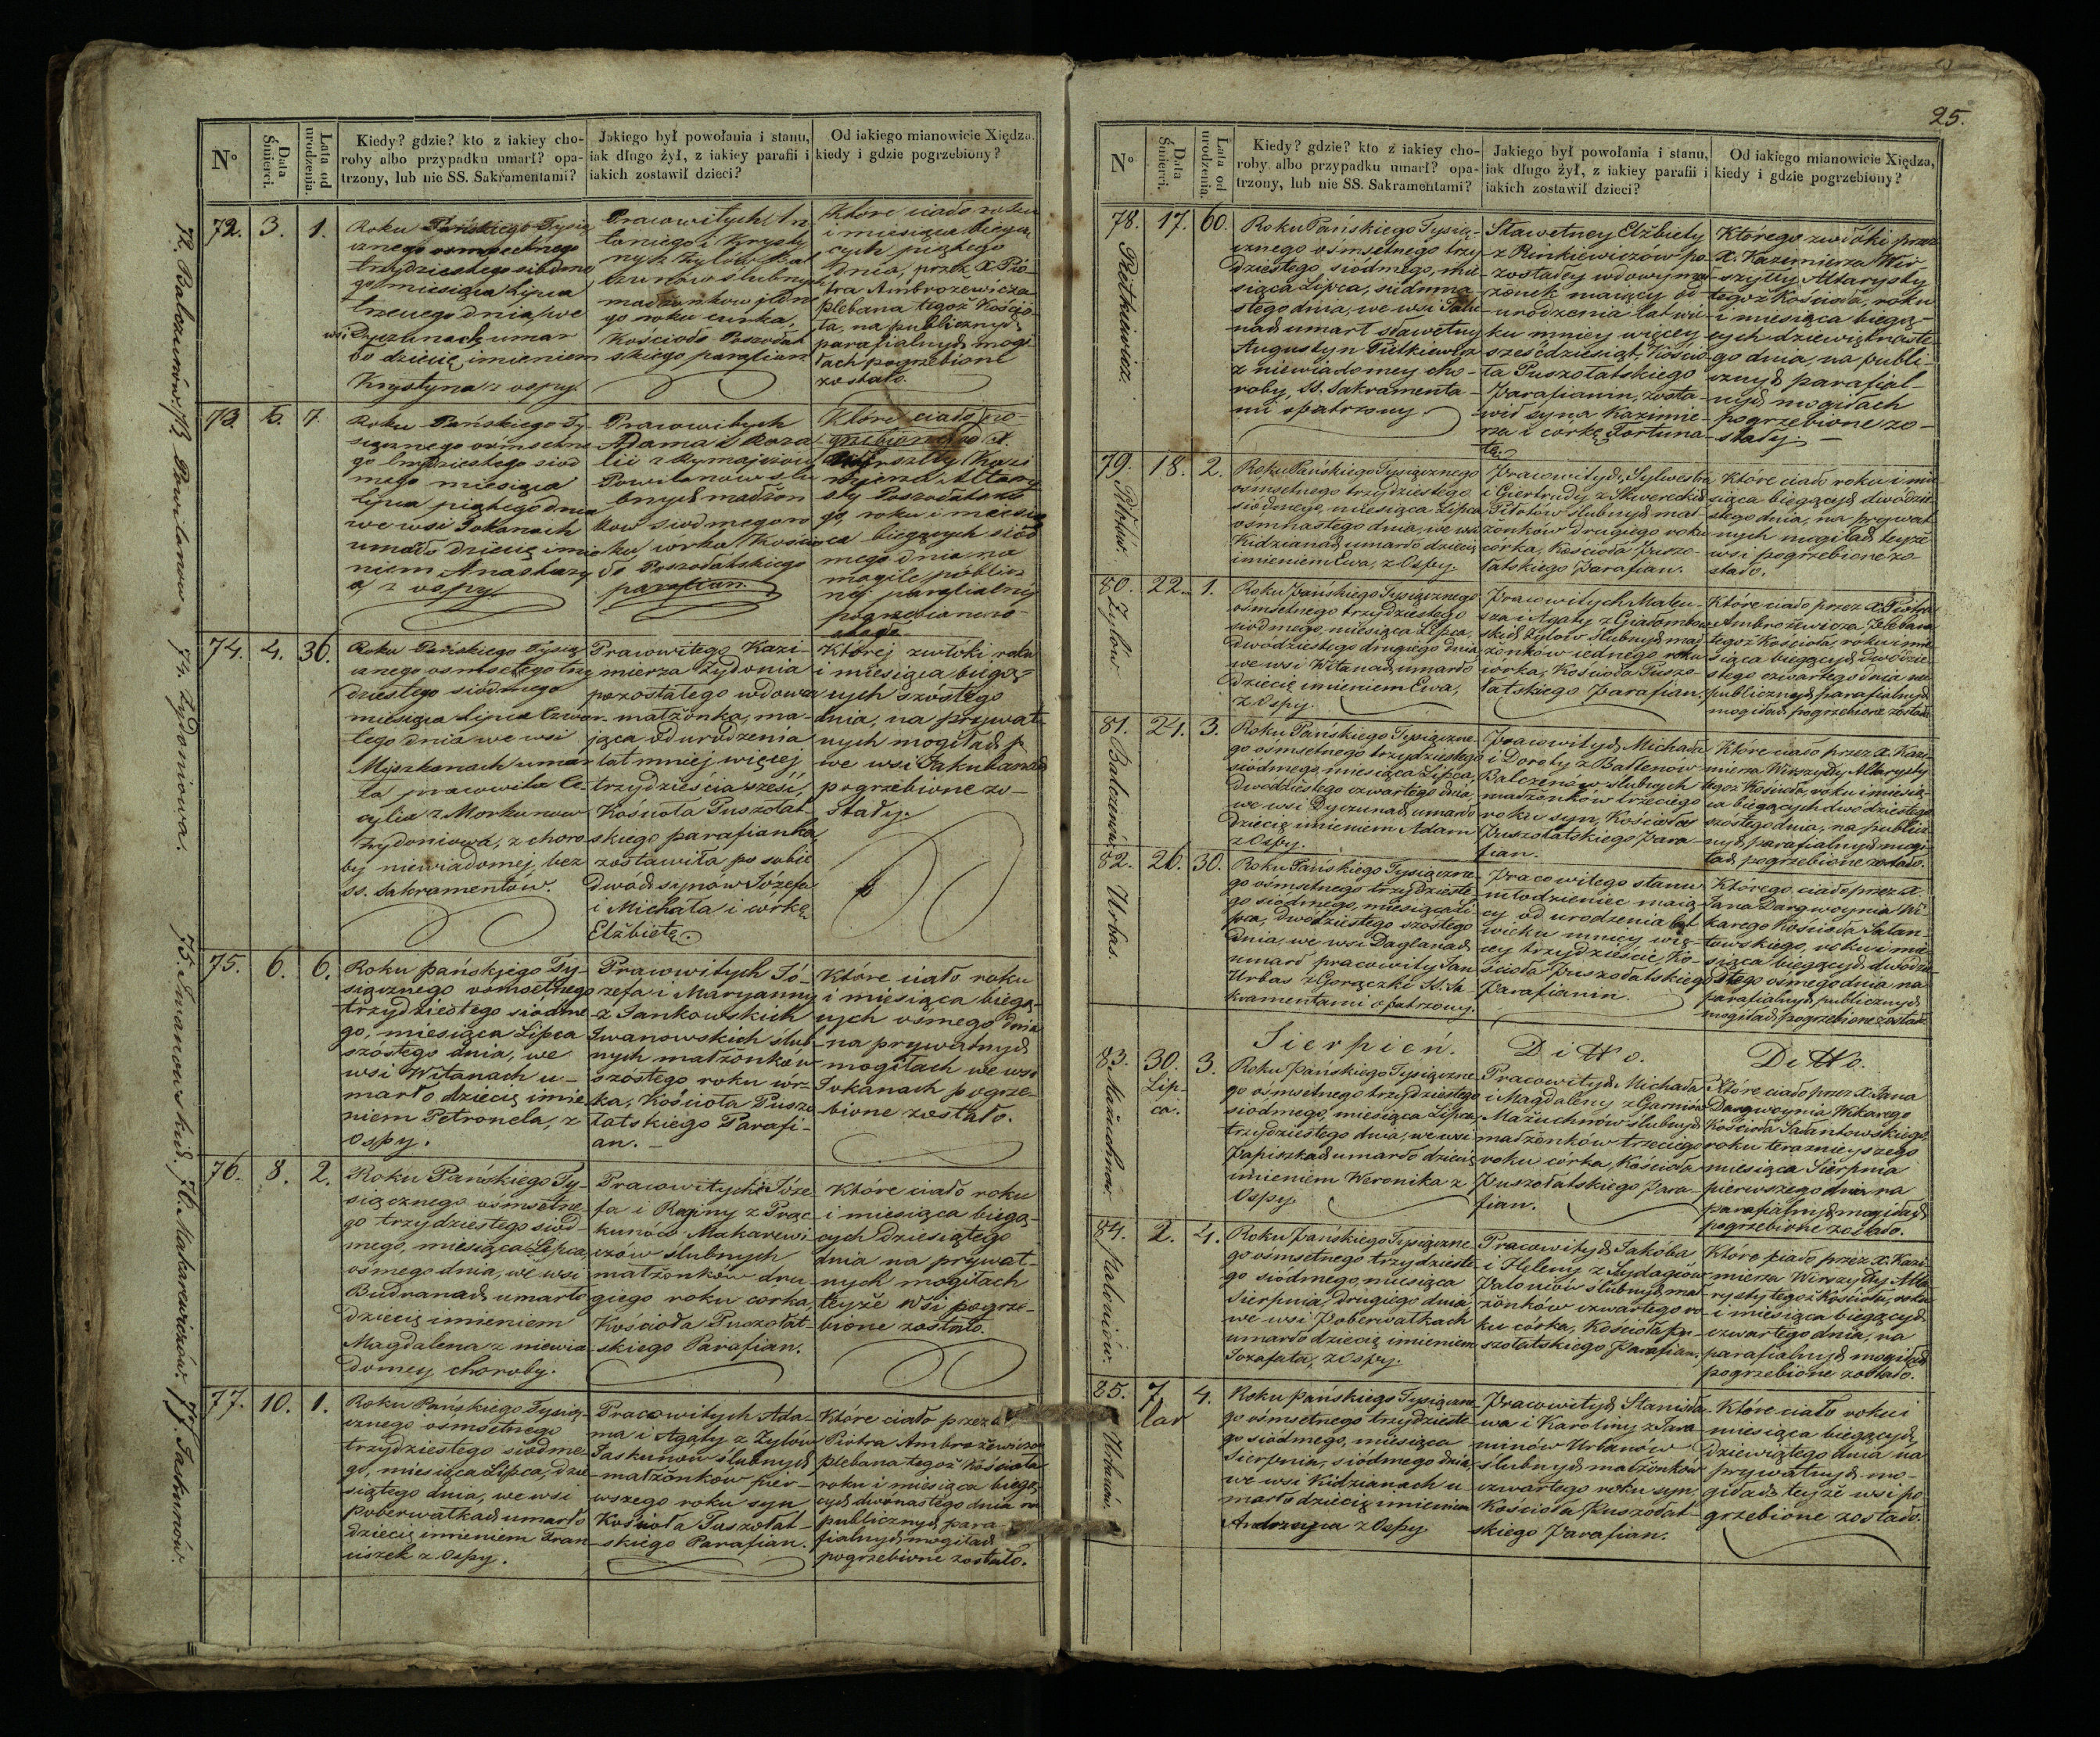 25.
N°
Data Śmierci.
Lata od urodzenia.
Kiedy? gdzie? kto z iakiey cho-
roby albo przypadku umarł? opa-
trzony, lub nie SS. Sakramentami?
Jakiego był powołania i stanu,
iak długo żył, z iakiey parafii i
iakich zostawił dzieci?
Od iakiego mianowicie Xiędza,
kiedy i gdzie pogrzebiony?
72.
3.
1.
Roku Pańskiego Tysią
cznego osmsetnego
trzydziestego siódme
go miesiąca Lipca
trzeciego dnia, we
wsi Dyczunach umar
ło dziecię imieniem
Krystyna z ospy.
Pracowitych An
toniego i Krysty
ny z Zylów
ślubnych
małżonkow jedne
go roku curka,
Kościoło Poszołat
skiego parafian
Które ciało roku
i miesiąca biegą
cych piątego
dnia, przez X. Pio
tra Ambrożewicza
plebana tegoż Kościo
ła, na publicznych
parafialnych mogi
łach pogrzebione
zostało.
73.
5.
7.
Powilanow
Roku Pańskiego Ty-
siącznego osmsetne
go trzydziestego siod
mego miesiąca
lipca piątego dnia
we wsi Jokanach
umarło dziecię imie
niem Anastazy
a z ospy
Pracowitych
Adama i Roza
lii z Rymajciow
Powilanow slu
bnych małżon
kow siodmego ro
ku córka Kościo
ła Poszołatskiego
parafian.
Które ciało po-
grzebione
Kazi
mierza Altary
sty Poszołatskie
go, roku i miesią
ca biegących siód
mego dnia na
mogile publicz
néj parafialnéj
pogrzebione zo
stało
74.
4.
36.
74. Zydoniowa.
Roku Pańskiego Tysią
cznego osmsetego trzy
dziestego siódmego
miesiąca Lipca Czwar
tego dnia we wsi
Myszkanach umar
ła pracowita Ce-
cylia z Morkunow
Zydoniowa, z choro
by niewiadomej, bez
SS. Sakramentów.
Pracowitego Kazi-
mierza Zydonia
pozostałego wdowca
małżonka, ma-
jąca od urodzenia
lat mniej więcej
trzydzieścia sześć,
Kościoła Puszołat-
skiego parafianka,
zostawiła po sobie
dwóch synów Józefa
i Michała i córkę
Elżbietę.
Której zwłóki roku
i miesiąca biegą
cych szóstego
dnia, na prywat-
nych mogiłach
we wsi Jakubanach
pogrzebione zo-
stały.
75.
6.
6.
75. Iwanowskich.
Roku pańskiego Ty-
siącznego osmsetnego
trzydziestego siódme
go, miesiąca Lipca
szóstego dnia, we
wsi Witanach u-
marło dziecię imie
niem Petronela, z
Ospy.
Pracowitych Jó-
zefa i Maryanny
z Jankowskich
Iwanowskich ślub
nych małżonków
szóstego roku cór-
ka, Kościoła Puszo
łatskiego Parafi-
an. -
Które ciało roku
i miesiąca biegą-
cych ośmego dnia
na prywatnych
mogiłach we wsi
Jokanach pogrze-
bione zostało.
76.
8.
2.
76. Makarewiczów.
Roku Pańskiego Ty-
siącznego ośmsetne
go trzydziestego siód-
mego, miesiąca Lipca,
ośmego dnia, we wsi
Budranach umarło
dziecię imieniem
Magdalena z niewia
domey choroby.
Pracowitych Józe-
fa i Raginy z
Makarewi
czów ślubnych
małżonków dru
giego roku corka,
Kościoła Puszołat-
skiego Parafian.
Które ciało roku
i miesiąca biegą-
cych dziesiątego
dnia na prywat-
nych mogiłach
teyże wsi pogrze-
bione zostało.
77.
10.
1.
77. Jaskunów.
Roku Pańskiego Tysią-
cznego ośmsetnego
trzydziestego siodme
go, miesiąca Lipca, dzie
siątego dnia, we wsi
Poberwałkach umarło
dziecię imieniem Fran
ciszek z Ospy.
Pracowitych Ada-
ma i Agaty z Zylów
Jaskunow ślubnych
małżonkow pier-
wszego roku syn
Kościoła Puszołat-
skiego Parafian.
Które ciało przez
Piotra Ambrożewicza
plebana tegoż Kościoła
roku i miesiąca biegą
cych dwónastego dnia na
publicznych para-
fialnych mogiłach
pogrzebione zostało.
N°
Data Śmierci.
Lata od urodzenia.
Kiedy? gdzie? kto z iakiey cho-
roby albo przypadku umarł? opa-
trzony, lub nie SS. Sakramentami?
Jakiego był powołania i stanu,
iak długo żył, z iakiey parafii i
iakich zostawił dzieci?
Od iakiego mianowicie Xiędza,
kiedy i gdzie pogrzebiony?
78.
17.
60.
Pietkiewicz.
Roku Pańskiego Tysią-
cznego ośmsetnego trzy
dziestego, siodmego, mie
siąca Lipca, siedmna
stego dnia, we wsi
umarł sławetny
Augustyn Pietkiewicz
z niewiadomey cho-
roby, SS. Sakramenta-
mi opatrzony.
Sławetney Elżbiety
z Rinkiewiczów po-
zostałey wdowy mał
żonek maiący od
urodzenia lat wie
ku mniey więcey
sześćdziesiąt, Kościo
ła Puszołatskiego
Parafianin, zosta-
wił syna Kazimie-
rza i córkę Fortuna
tę.
Którego zwłóki przez
X. Kazimierza Wir
szyłły Altarysty
tegoż Kościoła, roku
i miesiąca biegą-
cych dziewiętnaste-
go dnia, na publi-
cznych parafial-
nych mogiłach
pogrzebione zo-
stały. -
79.
18.
2.
Piłotów.
Roku Pańskiego Tysiącznego
ośmsetnego trzydziestego
siódmego, miesiąca Lipca
ośmnastego dnia, we wsi
Kidzianach umarło dziecię
imieniem Ewa, z Ospy.
Pracowitych, Sylwestra
i Giertrudy z Skwereckich
Piłotów ślubnych mał
żonków drugiego roku
córka, Kościoła Puszo-
łatskiego Parafian.
Które ciało roku i mie
siąca biegących dwódzie
stego dnia, na prywat
nych mogiłach teyże
wsi pogrzebione zo
stało.
80.
22.
1.
Zylów
Roku Pańskiego Tysiącznego
ośmsetnego trzydziestego
siodmego, miesiąca Lipca,
dwódziestego drugiego dnia
we wsi Witanach umarło
dziecię imieniem Ewa,
z Ospy.
Pracowitych Mateu-
sza i Agaty z
Zylów Ślubnych mał
zonków iednego roku
córka, Kościoła Puszo-
łatskiego Parafian.
Które ciało przez X. Piotra
Ambrożewicza Plebana
tegoż Kościoła, roku i mie
siąca biegących dwódzie-
stego czwartego dnia na
publicznych parafialnych
mogiłach pogrzebione zostało
81.
24.
3.
Balczenów.
Roku Pańskiego Tysiączne-
go ośmsetnego trzydziestego
siódmego, miesiąca Lipca,
dwódziestego czwartego dnia,
we wsi Dyczunach umarło
dziecię imieniem Adam
z Ospy.
Pracowitych Michała
i Doroty z Batlenow
Balczenów ślubnych
małżonkow trzeciego
roku syn, Kościoła
Puszołatskiego Para
fian.
Które ciało przez X. Kazi-
mierza Wirszyłły Altarysty
tegoż Kościoła, roku i miesią-
ca biegących dwodziestego
szóstego dnia, na publicz-
nych parafialnych mogi
łach pogrzebione zostało.
82.
26.
30.
Urbas.
Roku Pańskiego Tysiączne-
go ośmsetnego trzydzieste
go siodmego, miesiąca Li-
pca, dwodziestego szóstego
dnia, we wsi Daglanach
umarł pracowity Jan
Urbas z Gorączki SS. Sa
kramentami opatrzony.
Pracowitego stanu
młodzieniec maią-
cy od urodzenia lat
wieku mniey wię-
cey trzydzieście, Ko-
ścioła Puszołatskiego
Parafianin.
Którego ciało przez X.
Jana Dargwoynia Wi-
karego Kościoła Sałan-
towskiego, roku i mie
siąca biegących dwódzie
stego ośmego dnia na
parafialnych publicznych
mogiłach pogrzebione zostało
Sierpień.
Ditto.
Ditto.
83.
30.
Lip-
ca.
3.
Mażuchnow.
Roku Pańskiego Tysiączne-
go ośmsetnego trzydziestego
siodmego, miesiąca Lipca,
trzydziestego dnia, we wsi
Papiszkach umarło dziecię
imieniem Weronika z
Ospy.
Pracowitych Michała
i Magdaleny z Garniów
Mażuchnów ślubnych
małżonków trzeciego
roku córka, Kościoła
Puszołatskiego Para-
fian.
Które ciało przez X. Jana
Dargwoynia Wikarego
Kościoła Sałantowskiego,
roku teraznieyszego
miesiąca Sierpnia
pierwszego dnia na
parafialnych mogiłach
pogrzebione zostało.
84.
2.
4.
Paloniów.
Roku Pańskiego Tysiączne
go ośmsetnego trzydzieste
go siódmego, miesiąca
Sierpnia, drugiego dnia,
we wsi Poberwałkach
umarło dziecię imieniem
Jozafata, z Ospy.
Pracowitych Jakóba
i Heleny z
Paloniów ślubnych mał
żonków czwartego ro
ku córka, Kościoła Pu-
szołatskiego Parafian.
Które ciało przez X. Kazi-
mierza Wirszyłły Alta
rysty tegoż Kościoła, roku
i miesiąca biegących
czwartego dnia, na
parafialnych mogiłach
pogrzebione zostało.
85.
7.
4.
Urbanów.
Roku Pańskiego Tysiączne-
go ośmsetnego trzydzieste
go siódmego, miesiąca
Sierpnia, siódmego dnia,
we wsi Kidzianach u
marło dziecię imieniem
z Ospy
Pracowitych Stanisła-
wa i Karoliny z Tara
Urbanów
ślubnych małżonków
czwartego roku syn,
Kościoła Puszołat-
skiego Parafian.
Które ciało roku i
miesiąca biegących
dziewiątego dnia na
prywatnych mo-
giłach teyże wsi po
grzebione zostało.